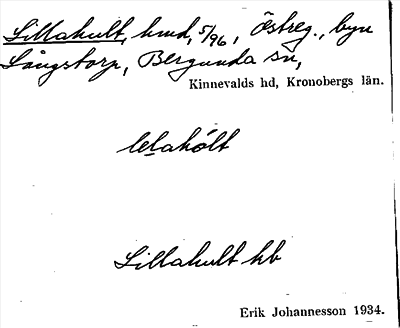 Lillahult, hmd, 5/96, östreg., byn
Långstorp, Bergunda sn,
Kinnevalds hd, Kronobergs län.
lelahólt
Lillahult hb
Erik Johannesson 1934.